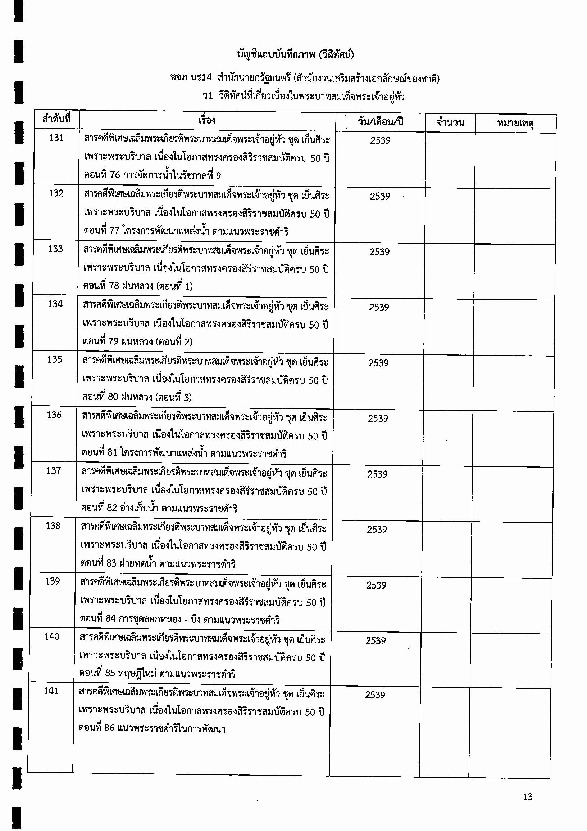 บัญชีแถบบันทึกภาพ (วีดิทัศน์)
หจภ นร14 สำนักนายกรัฐมนตรี (สำนักงานเสริมสร้างเอกลักษณ์ของชาติ)
ว1 วีดิทัศน์ที่เกี่ยวเนื่องในพระบาทสมเด็จพระเจ้าอยู่หัว
ลำดับที่ เรื่อง วัน/เดือน/ปี จำนวน หมายเหตุ
131 สารคดีพิเศษเฉลิมพระเกียรติพระบาทสมเด็จพระเจ้าอยู่หัว ชุด เย็นศิระ 2539
เพราะพระบริบาล เนื่องในโอกาสทรงครองสิริราชสมบัติครบ 50 ปี
ตอนที่ 76 การจัดการน้ำในรัชกาลที่ 9
132 สารคดีพิเศษเฉลิมพระเกียรติพระบาทสมเด็จพระเจ้าอยู่หัว ชุด เย็นศิระ 2539
เพราะพระบริบาล เนื่องในโอกาสทรงครองสิริราชสมบัติครบ 50 ปี
ตอนที่ 77 โครงการพัฒนาแหล่งน้ำ ตามแนวพระราชดำริ
133 สารคดีพิเศษเฉลิมพระเกียรติพระบาทสมเด็จพระเจ้าอยู่หัว ชุด เย็นศิระ 2539
เพราะพระบริบาล เนื่องในโอกาสทรงครองสิริราชสมบัติครบ 50 ปี
ตอนที่ 78 ฝนหลวง (ตอนที่ 1)
134 สารคดีพิเศษเฉลิมพระเกียรติพระบาทสมเด็จพระเจ้าอยู่หัว ชุด เย็นศิระ 2539
เพราะพระบริบาล เนื่องในโอกาสทรงครองสิริราชสมบัติครบ 50 ปี
ตอนที่ 79 ฝนหลวง (ตอนที่ 2)
135 สารคดีพิเศษเฉลิมพระเกียรติพระบาทสมเด็จพระเจ้าอยู่หัว ชุด เย็นศิระ 2539
เพราะพระบริบาล เนื่องในโอกาสทรงครองสิริราชสมบัติครบ 50 ปี
ตอนที่ 80 ฝนหลวง (ตอนที่ 3)
136 สารคดีพิเศษเฉลิมพระเกียรติพระบาทสมเด็จพระเจ้าอยู่หัว ชุด เย็นศิระ 2539
เพราะพระบริบาล เนื่องในโอกาสทรงครองสิริราชสมบัติครบ 50 ปี
ตอนที่ 81 โครงการพัฒนาแหล่งน้ำ ตามแนวพระราชดำริ
137 สารคดีพิเศษเฉลิมพระเกียรติพระบาทสมเด็จพระเจ้าอยู่หัว ชุด เย็นศิระ 2539
เพราะพระบริบาล เนื่องในโอกาสทรงครองสิริราชสมบัติครบ 50 ปี
ตอนที่ 82 อ่างเก็บน้ำ ตามแนวพระราชดำริ
138 สารคดีพิเศษเฉลิมพระเกียรติพระบาทสมเด็จพระเจ้าอยู่หัว ชุด เย็นศิระ 2539
เพราะพระบริบาล เนื่องในโอกาสทรงครองสิริราชสมบัติครบ 50 ปี
ตอนที่ 83 ฝายทดน้ำ ตามแนวพระราชดำริ
139 สารคดีพิเศษเฉลิมพระเกียรติพระบาทสมเด็จพระเจ้าอยู่หัว ชุด เย็นศิระ 2539
เพราะพระบริบาล เนื่องในโอกาสทรงครองสิริราชสมบัติครบ 50 ปี
ตอนที่ 84 การขุดลอกหนอง - บึง ตามแนวพระราชดำริ
140 สารคดีพิเศษเฉลิมพระเกียรติพระบาทสมเด็จพระเจ้าอยู่หัว ชุด เย็นศิระ 2539
เพราะพระบริบาล เนื่องในโอกาสทรงครองสิริราชสมบัติครบ 50 ปี
ตอนที่ 85 ทฤษฎีใหม่ ตามแนวพระราชดำริ
141 สารคดีพิเศษเฉลิมพระเกียรติพระบาทสมเด็จพระเจ้าอยู่หัว ชุด เย็นศิระ 2539
เพราะพระบริบาล เนื่องในโอกาสทรงครองสิริราชสมบัติครบ 50 ปี
ตอนที่ 86 แนวพระราชดำริในการพัฒนา
13